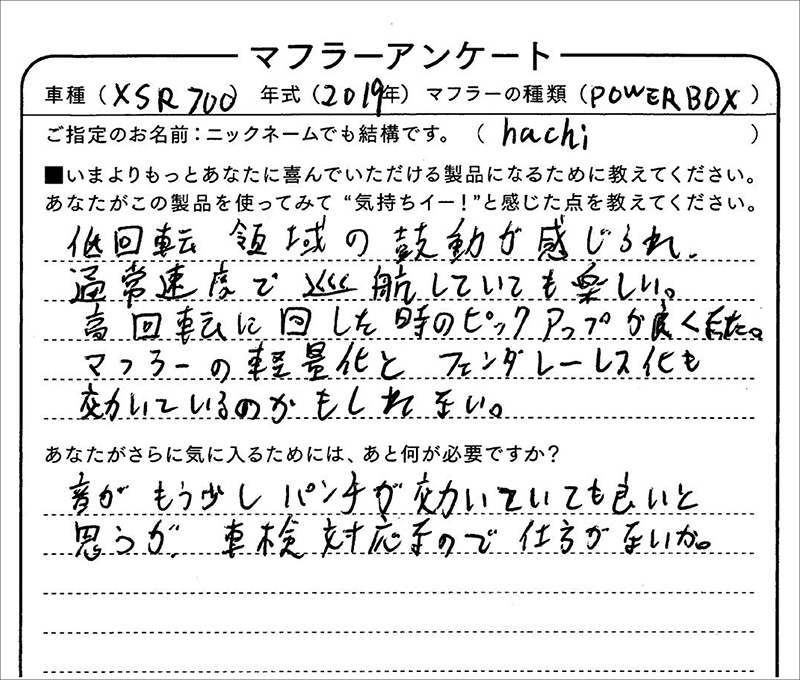 マフラーアンケート
車種（XSR700） 年式（2019年） マフラーの種類（POWERBOX）
ご指定のお名前：ニックネームでも結構です。（ hachi ）
■いまよりもっとあなたに喜んでいただける製品になるために教えてください。
あなたがこの製品を使ってみて“気持ちイー！”と感じた点を教えてください。
低回転 領域の鼓動が感じられ、
通常速度で巡航していても楽しい。
高回転に回した時のピックアップが良くなった。
マフラーの軽量化とフェンダーレス化も
効いているのかもしれない。
あなたがさらに気に入るためには、あと何が必要ですか？
音がもう少しパンチが効いていても良いと
思うが、車検対応なので仕方がないか。